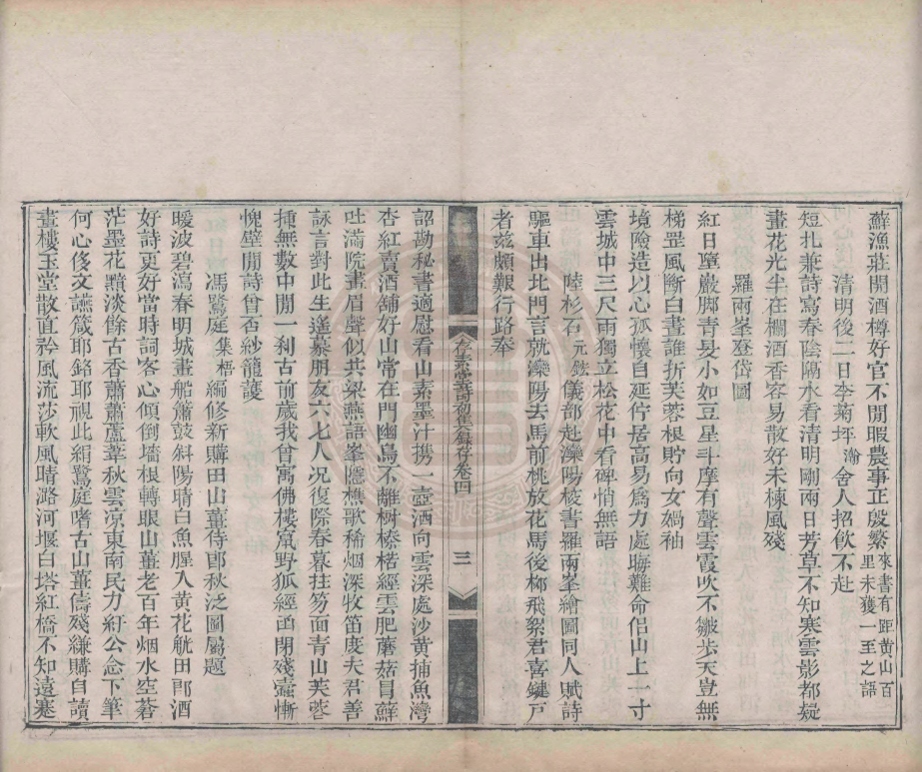 蘚漁莊開酒樽好官不閒暇農事正殷繁來書有距黄山百
里未獲一至之語
清明後二日李菊坪瀚舍人招飲不赴
短扎兼詩寫春陰隔水看清明剛兩日芳草不知寒雲影都疑
畫花光半在欄酒香容易散好未楝風殘
羅兩峯登岱圖
紅日壓巖脚青旻小如豆星斗摩有聲雲霞吹不皺恭天豈無
梯罡風斷白晝誰折芙蓉根貯向女媧袖
境險造以心孤懷自延佇居高易爲力處晦難命侣山上一寸
雲城中三尺雨獨立松花中看碑悄無語
陸杉石元鋐儀部赴灤陽校書羅兩峯繪圖同人賦詩
驅車出北門言就灤陽去馬前桃放花馬後柳飛絮君喜鍵戸
者兹頗艱行路奉
存素堂詩初集錄存卷四
三
詔勘秘書適慰看山素墨汁携一壺洒向雲深處沙黄捕魚灣
杏紅賣酒舖好山常在門幽鳥不離树榛楛經雲肥蘑菇冒蘚
吐滿院畫眉聲似共梁燕語峯隱樵歌稀烟深牧笛度夫君善
詠言對此生遙慕朋友六七人况復際春暮拄笏面青山芙蓉
揷無數中開一刹古前歲我曾寓佛樓窺野狐經函閉殘蠹慚
愧壁閒詩曾否紗籠護
馮鷺庭集梧編修新購田山薑侍郎秋泛圖屬題
暖波碧瀉春明城畫船簫鼓斜陽晴白魚腥入黄花觥田郎酒
好詩更好當時詞客心傾倒墻根轉眼山薑老百年烟水空蒼
茫墨花黯淡餘古香蕭蕭蘆葦秋雲凉東南民力紆公念下筆
何心侈文讌箴耶銘耶視此絹鷺庭嗜古山薑儔殘縑購自讀
畫樓玉堂散直矜風流莎軟風晴潞河堰白塔紅橋不知遠寒